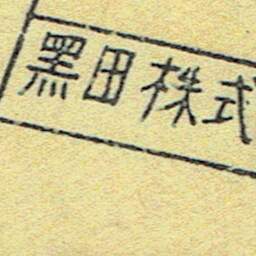 黑田株式